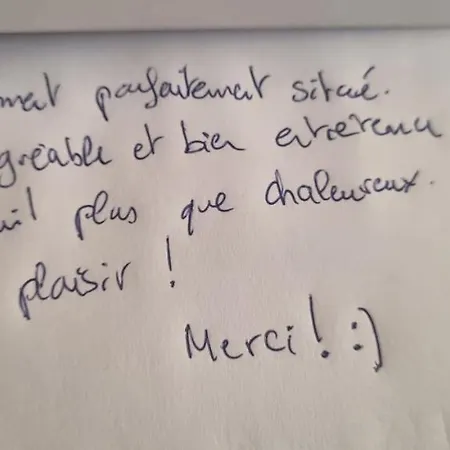 mat parfaitemat situé.
gréable et bien entretenu
uil plus que chaleureux.
plaisir !
Merci! :)